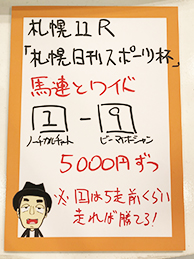 札幌11R
「札幌日刊スポーツ杯」
馬連とワイド
1-9
ノーチカルチャート ビーマイオーシャン
5000円ずつ
※1は5走前くらい
走れば勝てる!